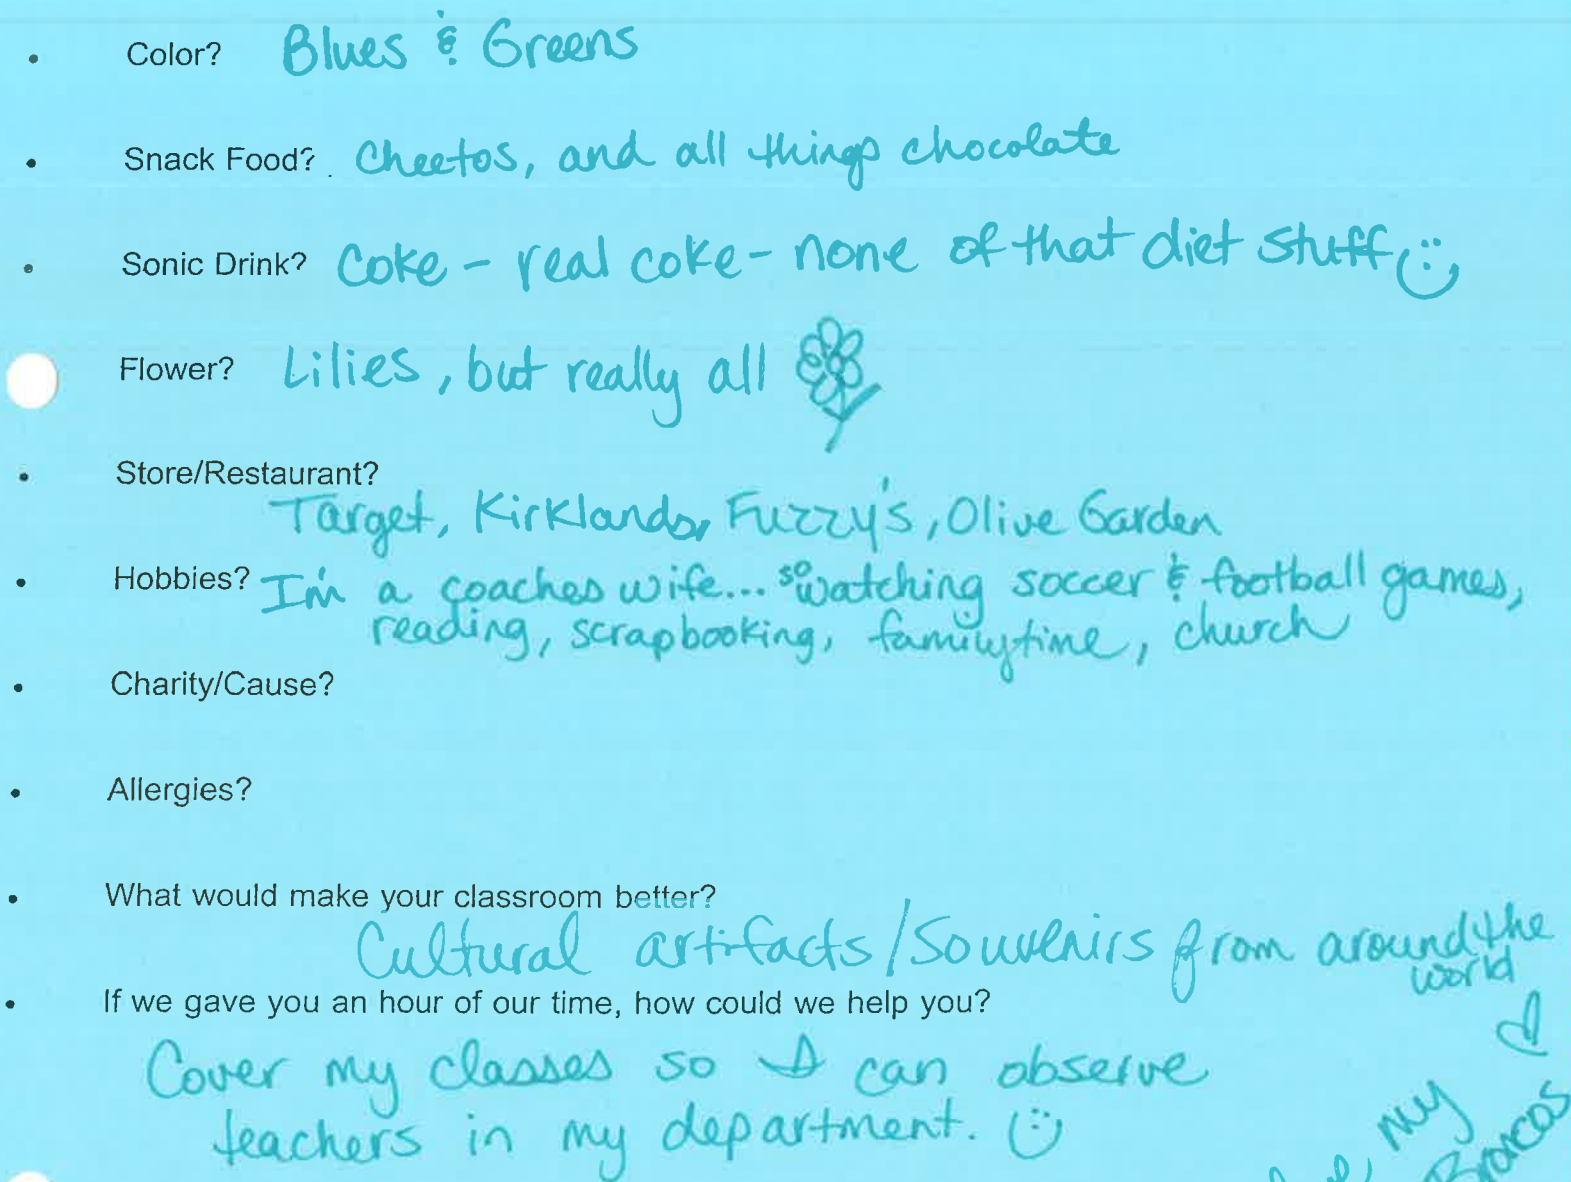 Color? Blues & Greens
Snack Food? Cheetos, and all things chocolate
Sonic Drink? Coke - real coke - none of that diet stuff
Flower? Lilies, but really all
Store/Restaurant?
Target, Kirklands, Fuzzy's, Olive Garden
Hobbies? I'm a coaches wife... so watching soccer & football games,
reading, scrapbooking, family time, church
Charity/Cause?
Allergies?
What would make your classroom better?
Cultural artifacts/Souvenirs from around the
world
If we gave you an hour of our time, how could we help you?
Cover my classes so I can observe
teachers in my department.
my
Broncos